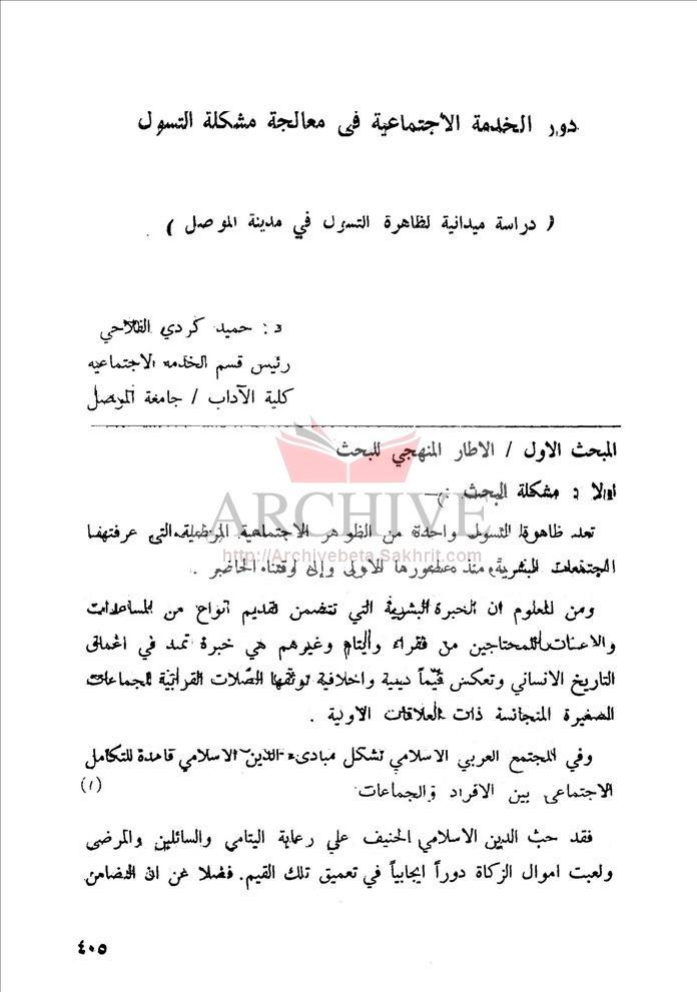 دور الخدمة الاجتماعية في معالجة مشكلة التسول
( دراسة ميدانية لظاهرة التسول في مدينة الموصل )
د : حميد كردي الفلاحي
رئيس قسم الخدمه الاجتماعيه
كلية الآداب / جامعة الموصل
المبحث الاول / الاطار المنهجي للبحث
اولا : مشكلة البحث :—
ARCHIVE
تعد ظاهرة التسول واحدة من الظوهر الاجتماعية المرضية التي عرفتهـا
http://Archivebeta.Sakhrit.com
المجتمعات البشرية منذ ظهورها الاولى وإلى وقتنا الحاضر .
ومن المعلوم ان الخبرة البشرية التي تتضمن تقديم انواع من المساعدات
والاعنات للمحتاجين من فقراء وأيتام وغيرهم هي خبرة تمتد في اعماق
التاريخ الانساني وتعكس قيّماً دينية واخلاقية توثقها الصّلات القرابيّة للجماعات
الصغيرة المتجانسة ذات العلاقات الاولية .
وفي المجتمع العربي الاسلامي تشكل مبادىء الدين الاسلامي قاعدة للتكامل
الاجتماعى بين الافراد والجماعات (١)
فقد حث الدين الاسلامي الحنيف علي رعاية اليتامي والسائلين والمرضى
ولعبت اموال الزكاة دوراً ايجابياً في تعميق تلك القيم. فضلا عن ان التضامن
٤٠٥